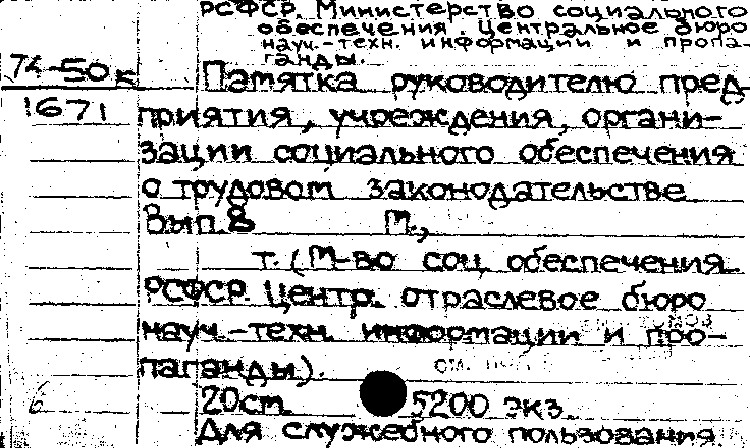 РСФСР. Министерство социального
обеспечения. Центральное бюро
науч.-техн. информации и пропа-
ганды.
74-50к
1671
Памятка руководителю пред-
приятия, учреждения, органи-
зации социального обеспечения
о трудовом законодательстве
Вып. 8 М.,
т. (М-во соц. обеспечения
РСФСР. Центр. отраслевое бюро
науч.-техн. информации и про-
паганды).
6
20см. 5200 экз.
Для служебного пользования.